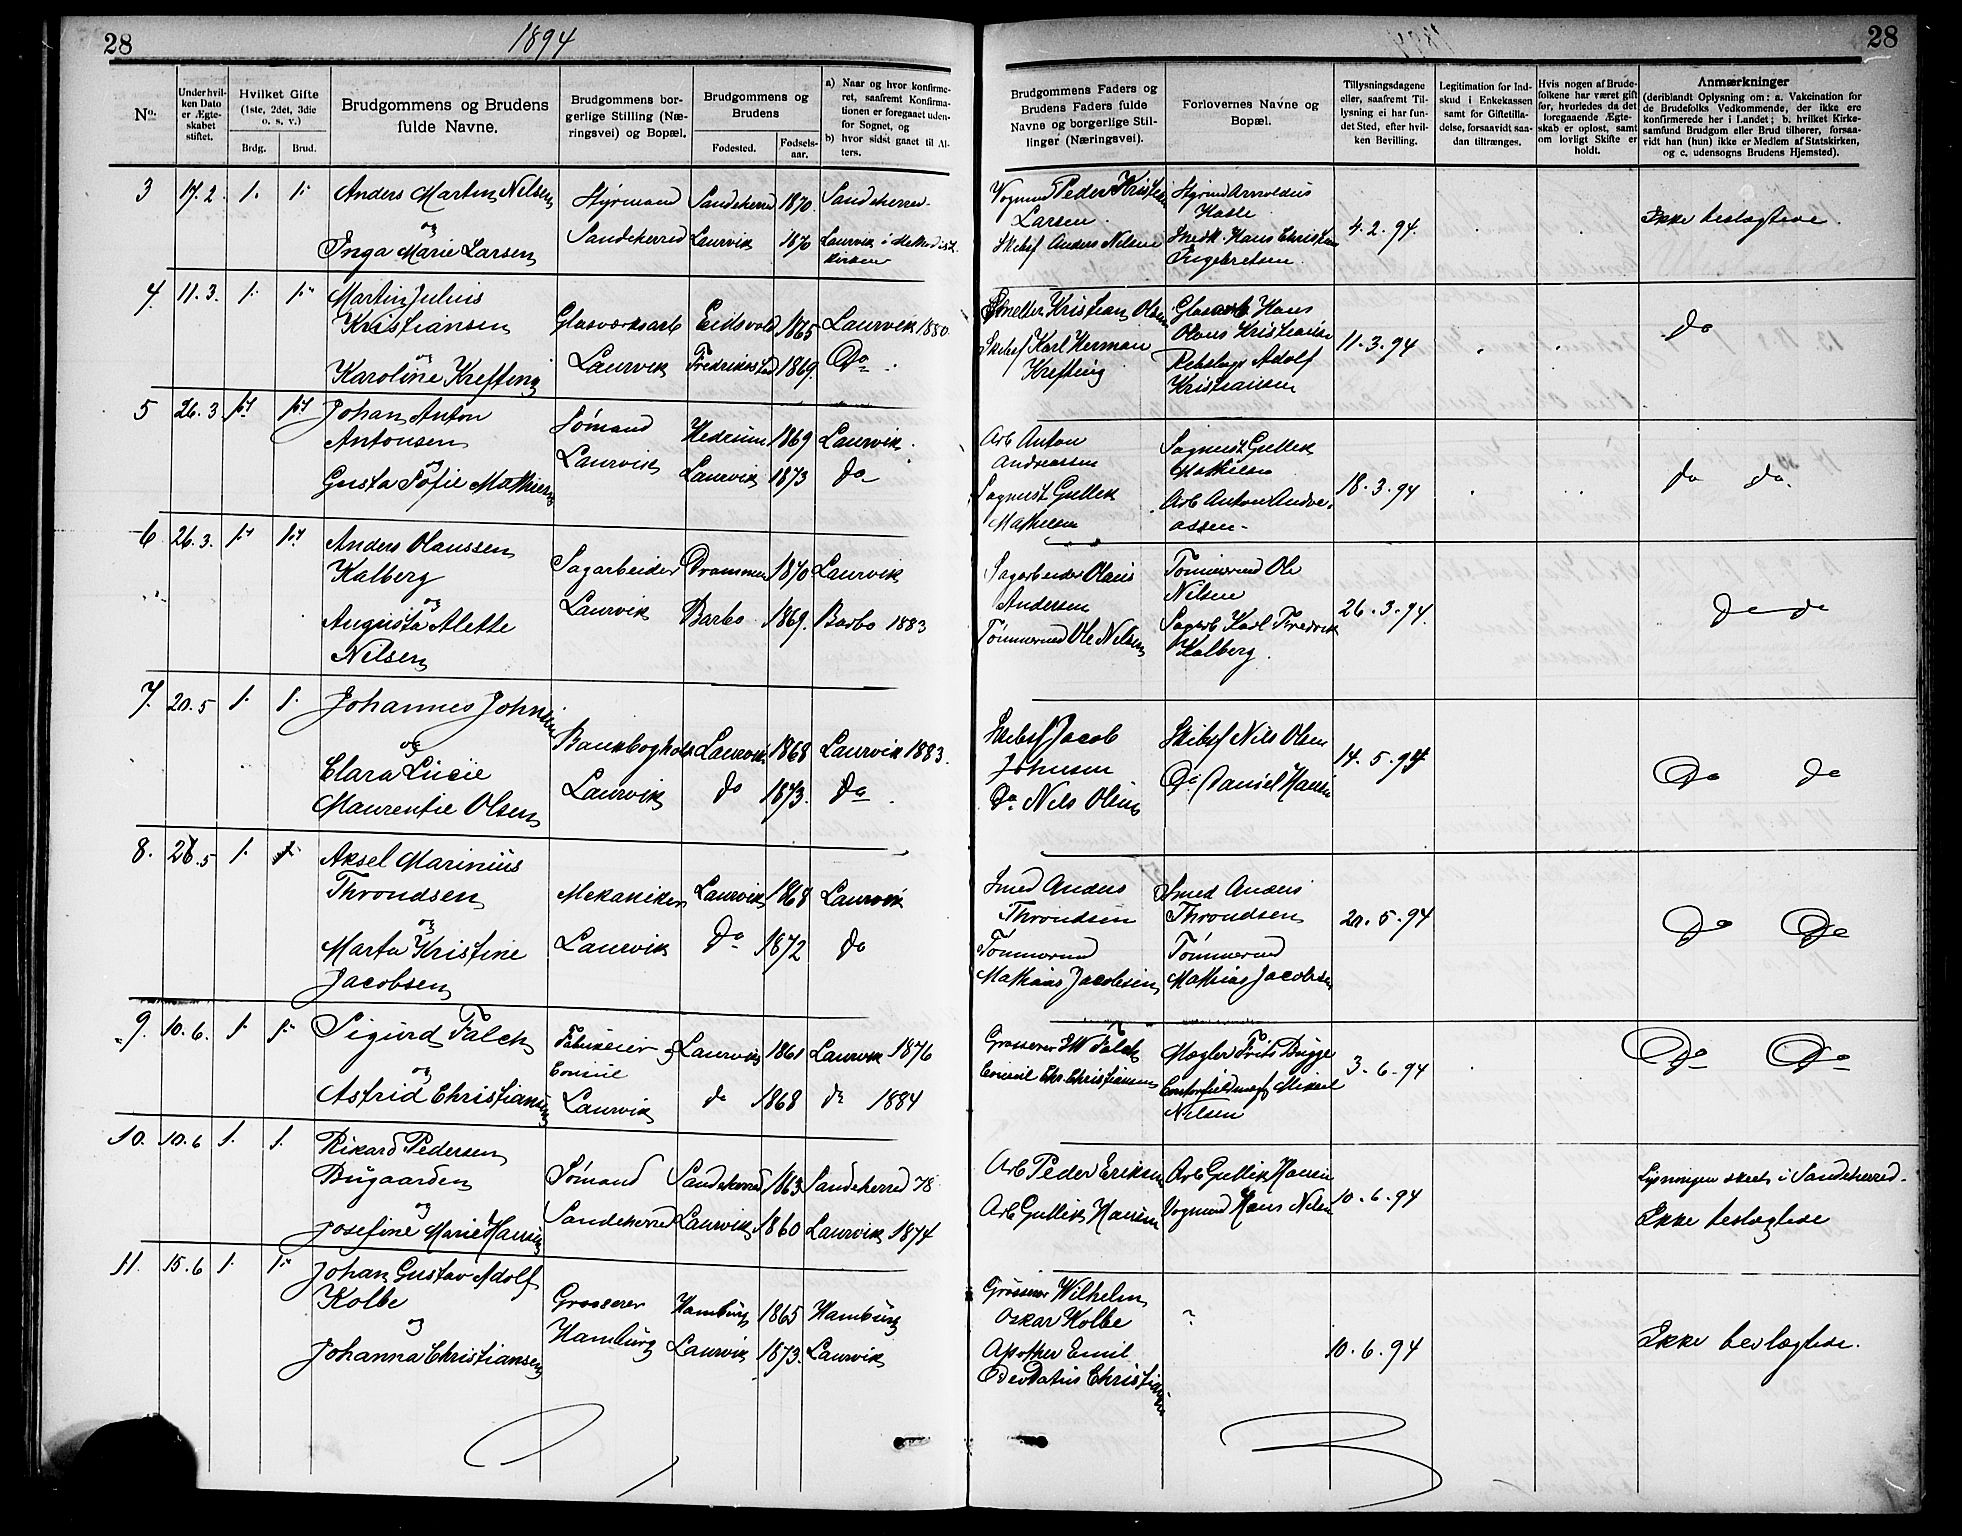 28
1894
28
No.
Under hvilken Dato er Ægteskabet stiftet.
Hvilket Gifte (1ste, 2det, 3die o. s. v.)
Brdg.
Brud.
Brudgommens og Brudens fulde Navne.
Brudgommens borgerlige Stilling (Næringsvei) og Bopæl.
Brudgommens og Brudens
Fødested.
Fødselsaar.
a) Naar og hvor konfirmeret, saafremt Konfirmationen er foregaaet udenfor Sognet, og
b) hvor sidst gaaet til Alters.
Brudgommens Faders og Brudens Faders fulde Navne og borgerlige Stillinger (Næringsvei).
Forlovernes Navne og Bopæl.
Tillysningsdagene eller, saafremt Tillysning ei har fundet Sted, efter hvilken Bevilling.
Legitimation for Indskud i Enkekassen samt for Giftetilladelse, forsaavidt saadan tiltrænges.
Hvis nogen af Brudefolkene har været gift før, hvorledes da det foregaaende Ægteskab er opløst, samt om lovligt Skifte er holdt.
Anmærkninger
(deriblandt Oplysning om: a. Vakcination for de Brudefolks Vedkommende, der ikke ere konfirmerede her i Landet; b. hvilket Kirkesamfund Brudgom eller Brud tilhører, forsaavidt han (hun) ikke er Medlem af Statskirken, og c. udensogns Brudens Hjemsted).
3 17.2. 1. 1. Anders Martin Nilsen
og
Inga Marie Larsen
Styrmand
Sandeherred
Sandeherred 1870. Sandeherred.
Laurvik 1870 Laurvik i Methodistkirken
Vognmd Peder Kristian
Larsen
Skibsf Anders Nilsen
Styrmd Arnoldus
Hasle
Smedk. Hans Christian
Engebretsen
4.2.94.
Ikke beslægtede.
4. 11.3. 1. 1. Martin Julius
Kristiansen
og
Karoline Krefting
Glasværksarb
Laurvik
Eidsvold 1865 Laurvik 1880.
Fredrikstad 1869. Do
Smelter Kristian Olsen
Skibsf Karl Herman
Krefting
Glasarb Hans
Olaus Kristiansen
Rebslager Adolf
Kristiansen
11.3.94
do
5 26.3. Johan Anton
Antonsen
og
Gusta Sofie Mathisen
Sømand
Laurvik
Hedrum 1869 Laurvik.
Laurvik 1873 do
Arb Anton
Andreassen
Sagmest Gullik
Mathisen
Sagmest Gullik
Mathisen
Arb Anton Andreassen
18.3.94
do do.
6 26.3. Anders Olaussen
Kalberg
og
Augusta Alette
Nilsen
Sagarbeider
Laurvik
Drammen 1870 Laurvik
Barbo 1869. Barbo 1883
Sagarbeider Olaus
Andersen
Tømmermd Ole Nilsen
Tømmermd Ole
Nilsen
Sagarb Karl Fredrik
Kalberg.
26.3.94.
do do
7. 20.5 1. 1. Johannes Johnsen
og
Clara Lucie
Maurentie Olsen
Bankbogholder
Laurvik
Laurvik 1868 Laurvik 1883.
do 1873. do
Skibsf Jacob
Johnsen
Do Nils Olsen
Skibsf Nils Olsen
Do Daniel Hansen
14.5.94
Do do
8. 26.5 1. Aksel Marinius
Throndsen
og
Marta Kristine
Jacobsen
Mekaniker
Laurvik
Laurvik 1868 Laurvik
Do 1872 do
Smed Anders
Throndsen
Tømmermd
Mathias Jacobsen
Smed Anders
Throndsen
Tømmermd
Mathias Jacobsen
20.5.94
Do Do
9. 10.6. 1. 1. Sigurd Falch
og
Astrid Christiansen
Fabrikeier og
Consul
Laurvik
Laurvik 1861 Laurvik 1876
do 1868 do 1884
Grosserer Falch
Consul Chr. Christiansen
Mægler Frits Bugge
Mikael
Nilsen
3.6.94
Do Do
10. 10.6 1. 1. Rikard Pedersen
Bugaarden
og
Josefine Marie Hansen
Sømand
Sandeherred
Sandeherred 1863 Sandeherred 78
Laurvik 1860 Laurvik 1874
Arb Peder Eriksen
Arb Gullik Hansen
Arb Gullik Hansen
Vognmd Hans Nilsen
10.6.94
Lysningen skeet i Sandeherred.
Ikke beslægtede
11. 15.6 1. 1. Johan Gustav Adolf
Kolbe
og
Johanna Christiansen
Grosserer
Hamburg
Hamburg 1865 Hamburg
Laurvik 1873. Laurvik
Grosserer Wilhelm
Oskar Kolbe
Apother Emil
Deodatus Christiansen
?
10.6.94
Ikke beslægtede.